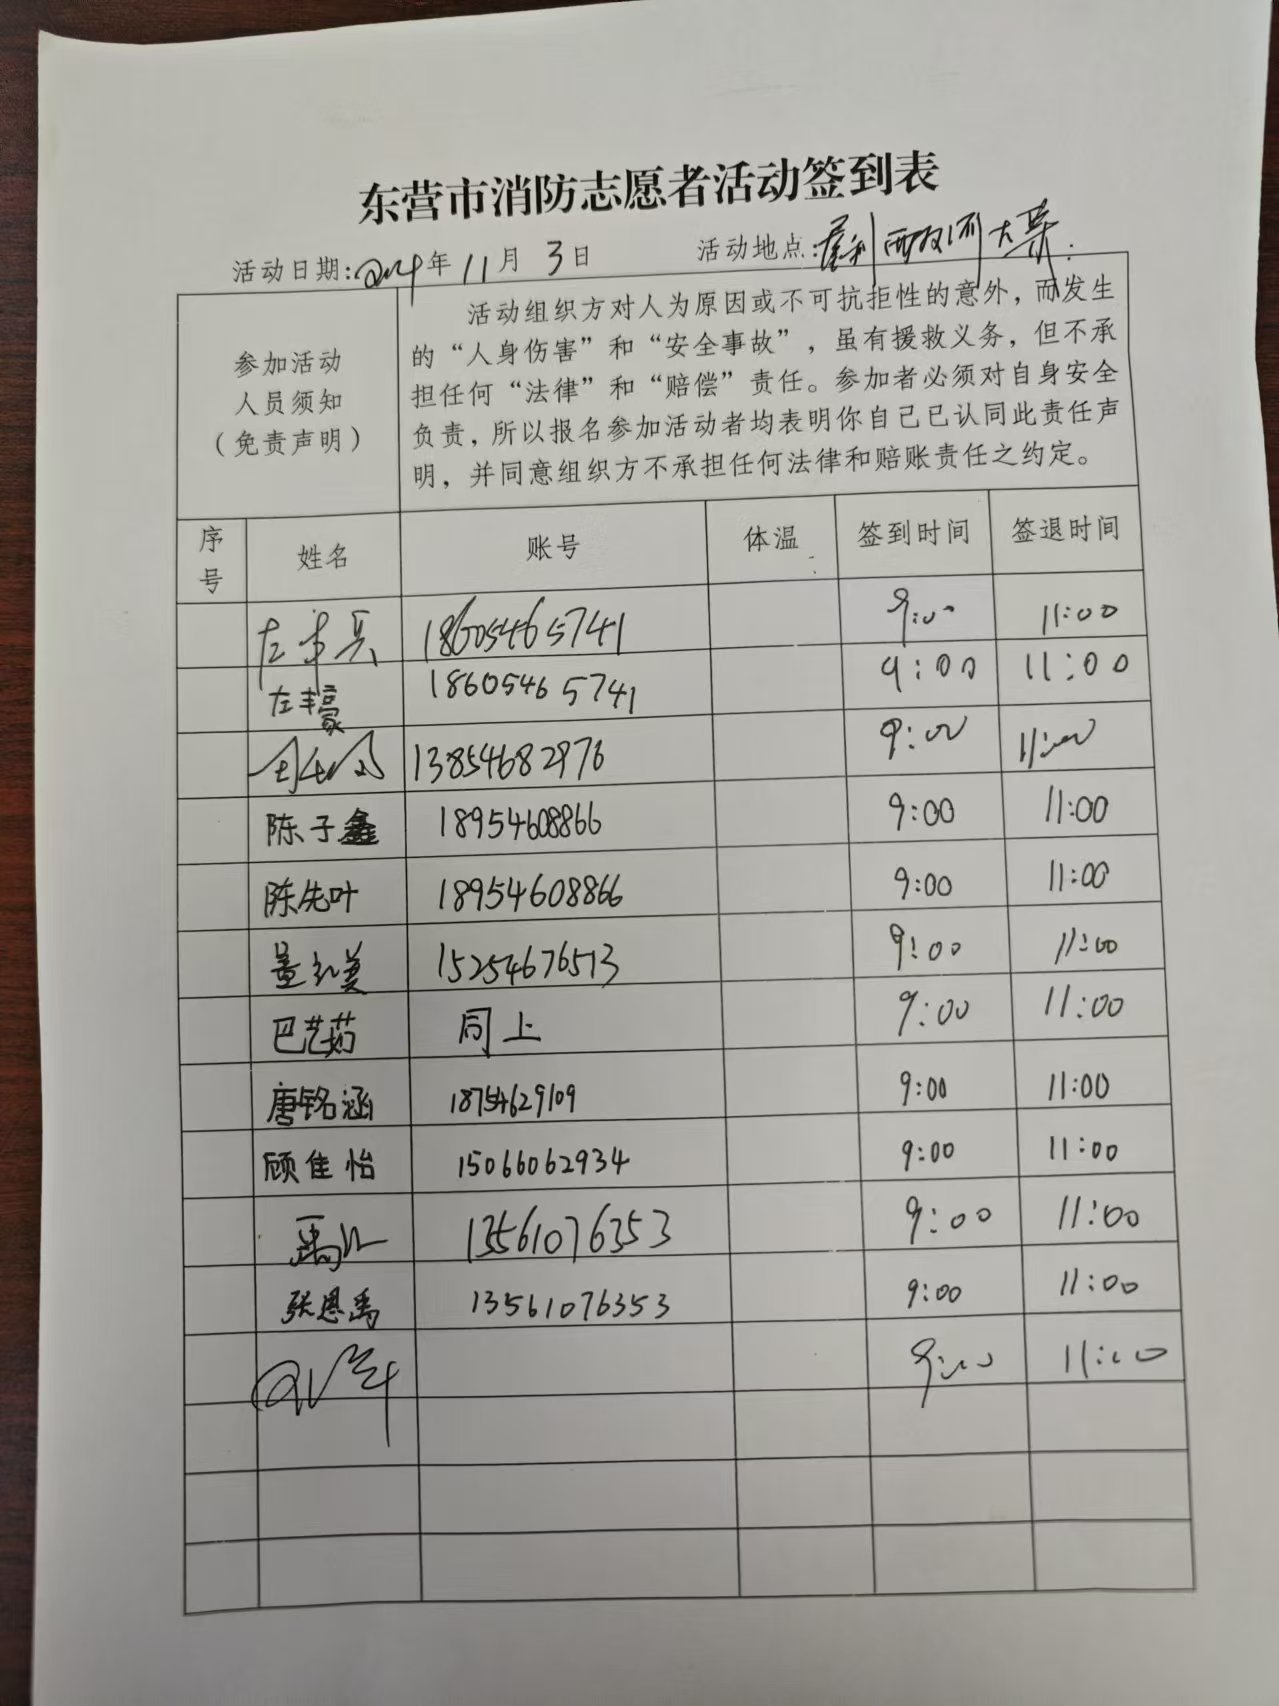 东营市消防志愿者活动签到表
活动日期:2024年11月3日 活动地点:
参加活动
人员须知
(免责声明)
活动组织方对人为原因或不可抗拒性的意外，而发生
的“人身伤害”和“安全事故”，虽有援救义务，但不承
担任何“法律”和“赔偿”责任。参加者必须对自身安全
负责，所以报名参加活动者均表明你自己已认同此责任声
明，并同意组织方不承担任何法律和赔账责任之约定。
序号 姓名 账号 体温 签到时间 签退时间
18605465741 9:00 11:00
左丰豪 18605465741 9:00 11:00
13854682976 9:00 11:00
陈子鑫 18954608866 9:00 11:00
陈先叶 18954608866 9:00 11:00
董红美 15254676513 9:00 11:00
巴艺茹 同上 9:00 11:00
唐铭涵 18754629109 9:00 11:00
顾佳怡 15066062934 9:00 11:00
13561076353 9:00 11:00
张恩禹 13561076353 9:00 11:00
9:00 11:00